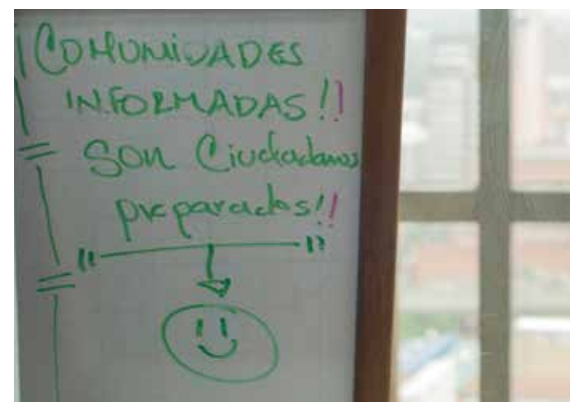 ¡COMUNIDADES
INFORMADAS!!
SON Ciudadanos
preparados!!